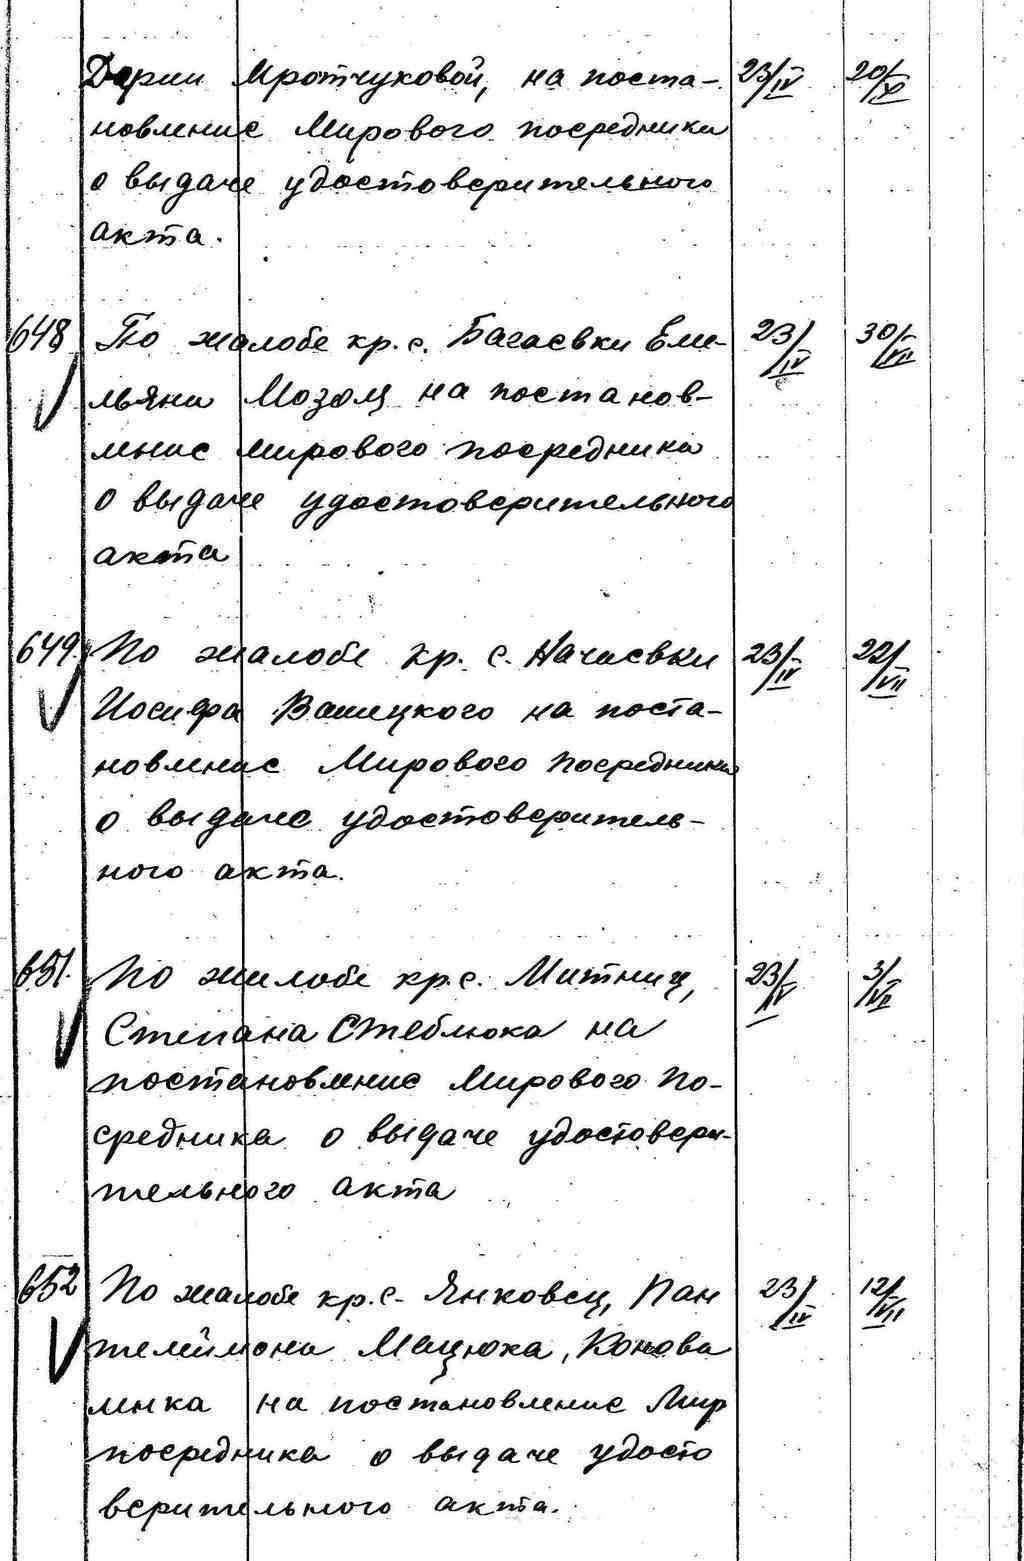 Дарии Мротчуковой, на поста- 23/IV 20/XI
новление Мирового посредника
о выдаче удостоверительного
акта.
648 По жалобе кр. с. Багаевки Еме- 23/IV 30/VII
льяна Мозоля на постанов-
ление мирового посредника
о выдаче удостоверительного
акта
649. По жалобе кр. с. Начаевки 23/IV 22/VII
Иосифа Вашецкого на поста-
новление Мирового посредника
о выдаче удостоверитель-
ного акта.
651. По жалобе кр. с. Митниц, 23/IV 3/VII
Степана Стеблюка на
постановление Мирового по-
средника о выдаче удостовери-
тельного акта
652 По жалобе кр. с. Янковец, Пан 23/IV 12/VII
телеймона Мацюка, Конова
ленка на постановление Мир
посредника о выдаче удосто
верительного акта.